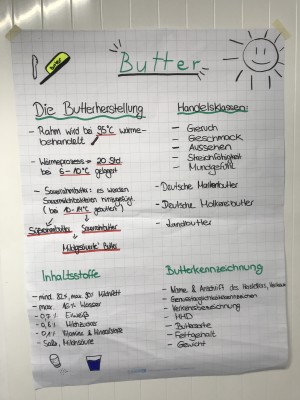 Butter
Die Butterherstellung
- Rahm wird bei 95°C wärme-
behandelt
- Wärmeprozess → 20 Std.
bei 6-10°C gelagert
- Sauerrahmbutter: es werden
Sauermilchbakterien hinzugefügt
(bei 10-14°C gebuttert)
Süßrahmbutter Sauerrahmbutter
Mildgesäuerte Butter
Handelsklassen:
- Geruch
- Geschmack
- Aussehen
- Streichfähigkeit
- Mundgefühl
- Deutsche Markenbutter
- Deutsche Molkereibutter
- Landbutter
Inhaltsstoffe
- mind. 82%, max. 90% Milchfett
- max. 16% Wasser
- 0,7% Eiweiß
- 0,6% Milchzucker
- 0,1% Vitamine & Mineralstoffe
- Salz, Milchsäure
Butterkennzeichnung
- Name & Anschrift des Herstellers,
- Genusstauglichkeitskennzeichen
- Verkehrsbezeichnung
- MHD
- Buttersorte
- Fettgehalt
- Gewicht